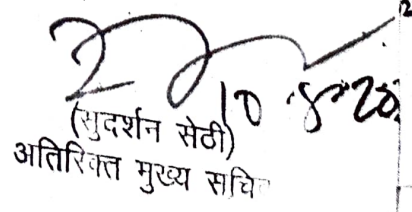 10.8.20
(सुदर्शन सेठी)
अतिरिक्त मुख्य सचि